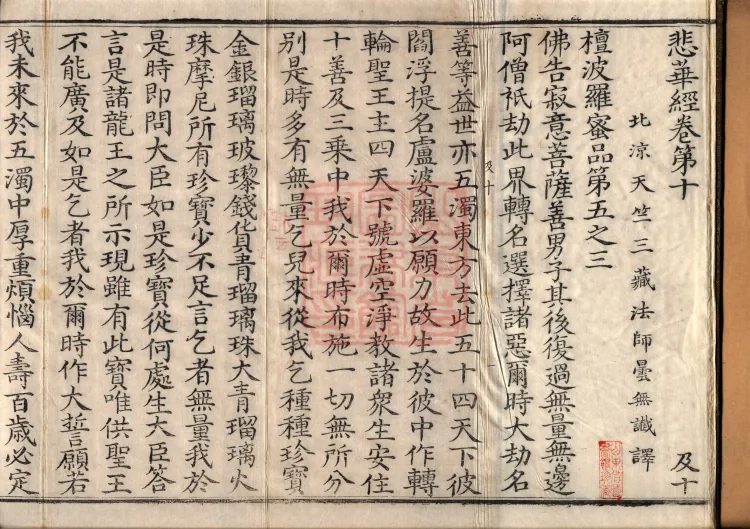 悲華經卷第十
及十
北涼天竺三藏法師曇無讖譯
檀波羅蜜品第五之三
佛告寂意菩薩善男子其後復過無量無邊
阿僧祇劫此界轉名選擇諸惡爾時大劫名
及十
善等益世亦五濁東方去此五十四天下彼
閻浮提名盧婆羅以願力故生於彼中作轉
輪聖王主四天下號虛空淨教諸衆生安住
十善及三乘中我於爾時布施一切無所分
別是時多有無量乞兒來從我乞種種珍寶
金銀瑠璃玻瓈錢貨青瑠璃珠大青瑠璃火
珠摩尼所有珍寶少不足言乞者無量我於
是時即問大臣如是珍寶從何處生大臣答
言是諸龍王之所示現雖有此寶唯供聖王
不能廣及如是乞者我於爾時作大誓願若
我未來於五濁中厚重煩惱人壽百歲必定